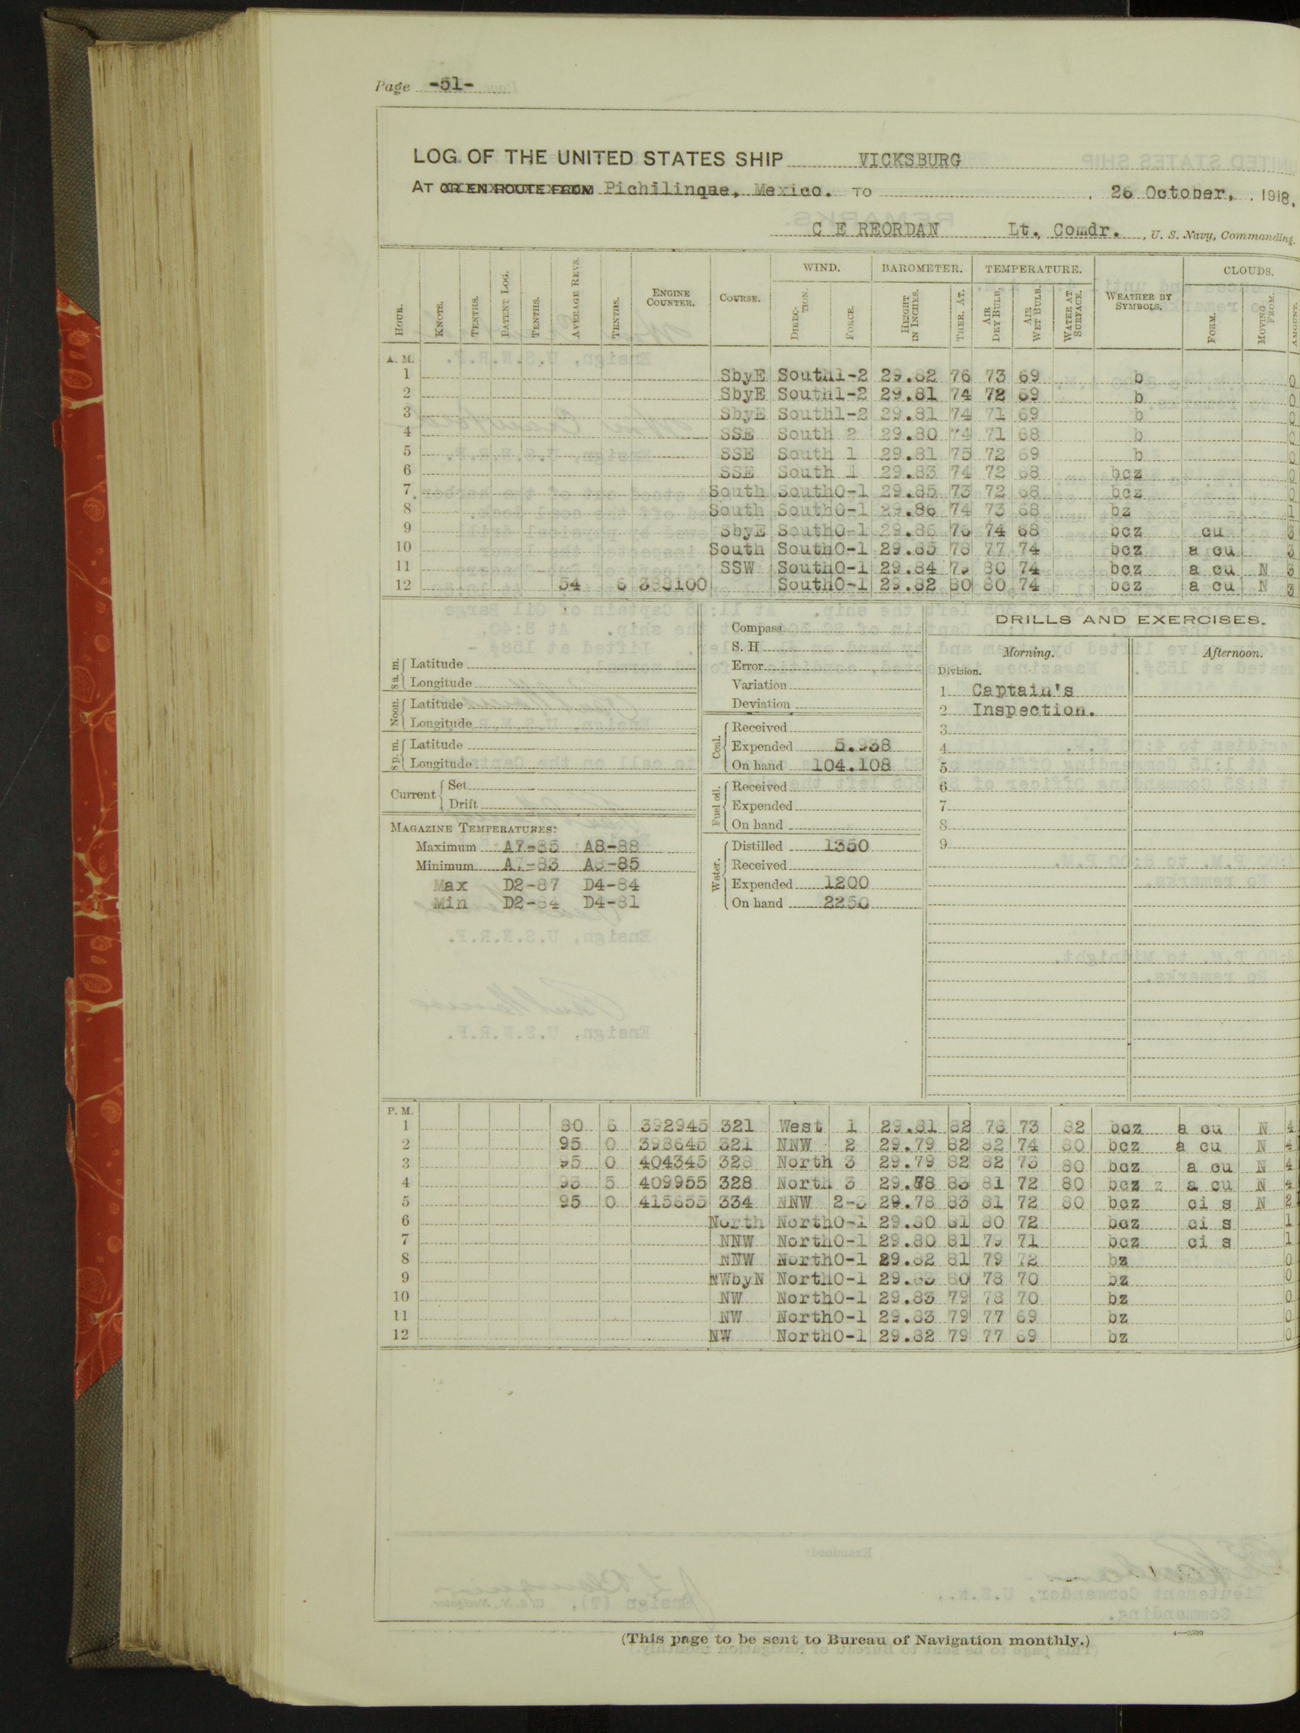 Page -51-
LOG OF THE UNITED STATES SHIP VICKSBURG
AT OR EN ROUTE FROM Pichilinque, Mexico. TO , 26 October, , 1918,
C E REORDAN Lt. Comdr. , U. S. Navy, Commanding.
HOUR. KNOTS. TENTHS. PATENT LOG. TENTHS. AVERAGE REVS. TENTHS. ENGINE COUNTER. COURSE. WIND. DIRECTION. FORCE. BAROMETER. HEIGHT IN INCHES. THER. AT. TEMPERATURE. AIR DRY BULB. AIR WET BULB. WATER AT SURFACE. WEATHER BY SYMBOLS. CLOUDS. FORM. MOVING FROM. AMOUNT.
A. M.
1 SbyE South 1-2 29.82 76 73 69 b 0
2 SbyE South 1-2 29.81 74 72 69 b 0
3 SbyE South 1-2 29.81 74 71 69 b 0
4 SSE South 2 29.80 74 71 68 b 0
5 SSE South 1 29.81 75 72 69 b 0
6 SSE South 1 29.83 74 72 68 bcz 0
7 South South 0-1 29.85 73 72 68 bcz 0
8 South South 0-1 29.86 74 73 68 bz 1
9 SbyE South 0-1 29.86 76 74 68 bcz cu 3
10 South South 0-1 29.85 78 77 74 bcz a cu 3
11 SSW South 0-1 29.84 79 80 74 bcz a cu N 3
12 54 6 South 0-1 29.82 80 80 74 bcz a cu N 3
8 a. m. Latitude
Longitude
Noon. Latitude
Longitude
8 p. m. Latitude
Longitude
Current Set
Drift
MAGAZINE TEMPERATURES:
Maximum A7-85 A8-88
Minimum A7-83 A8-85
Max D2-87 D4-84
Min D2-84 D4-81
Compass
S. H
Error
Variation
Deviation
Coal. Received
Expended 5.938
On hand 104.108
Fuel oil. Received
Expended
On hand
Water. Distilled 1350
Received
Expended 1200
On hand 2250
DRILLS AND EXERCISES.
Morning. Afternoon.
Division.
1 Captain's
2 Inspection.
3
4
5
6
7
8
9
P. M.
1 80 6 392945 321 West 1 29.81 82 78 73 82 bcz a cu N 4
2 95 0 398645 321 NNW 2 29.79 82 82 74 80 bcz a cu N 4
3 95 0 404345 328 North 3 29.79 82 82 73 80 bcz a cu N 4
4 93 5 409955 328 North 3 29.78 83 81 72 80 bcz z a cu N 4
5 95 0 415655 334 NNW 2-3 29.78 83 81 72 80 bcz ci s N 2
6 North North 0-1 29.80 81 80 72 bcz ci s 1
7 NNW North 0-1 29.80 81 79 71 bcz ci s 1
8 NNW North 0-1 29.82 81 79 72 bz 0
9 NWbyN North 0-1 29.83 80 78 70 bz 0
10 NW North 0-1 29.83 79 78 70 bz 0
11 NW North 0-1 29.83 79 77 69 bz 0
12 NW North 0-1 29.82 79 77 69 bz 0
(This page to be sent to Bureau of Navigation monthly.)